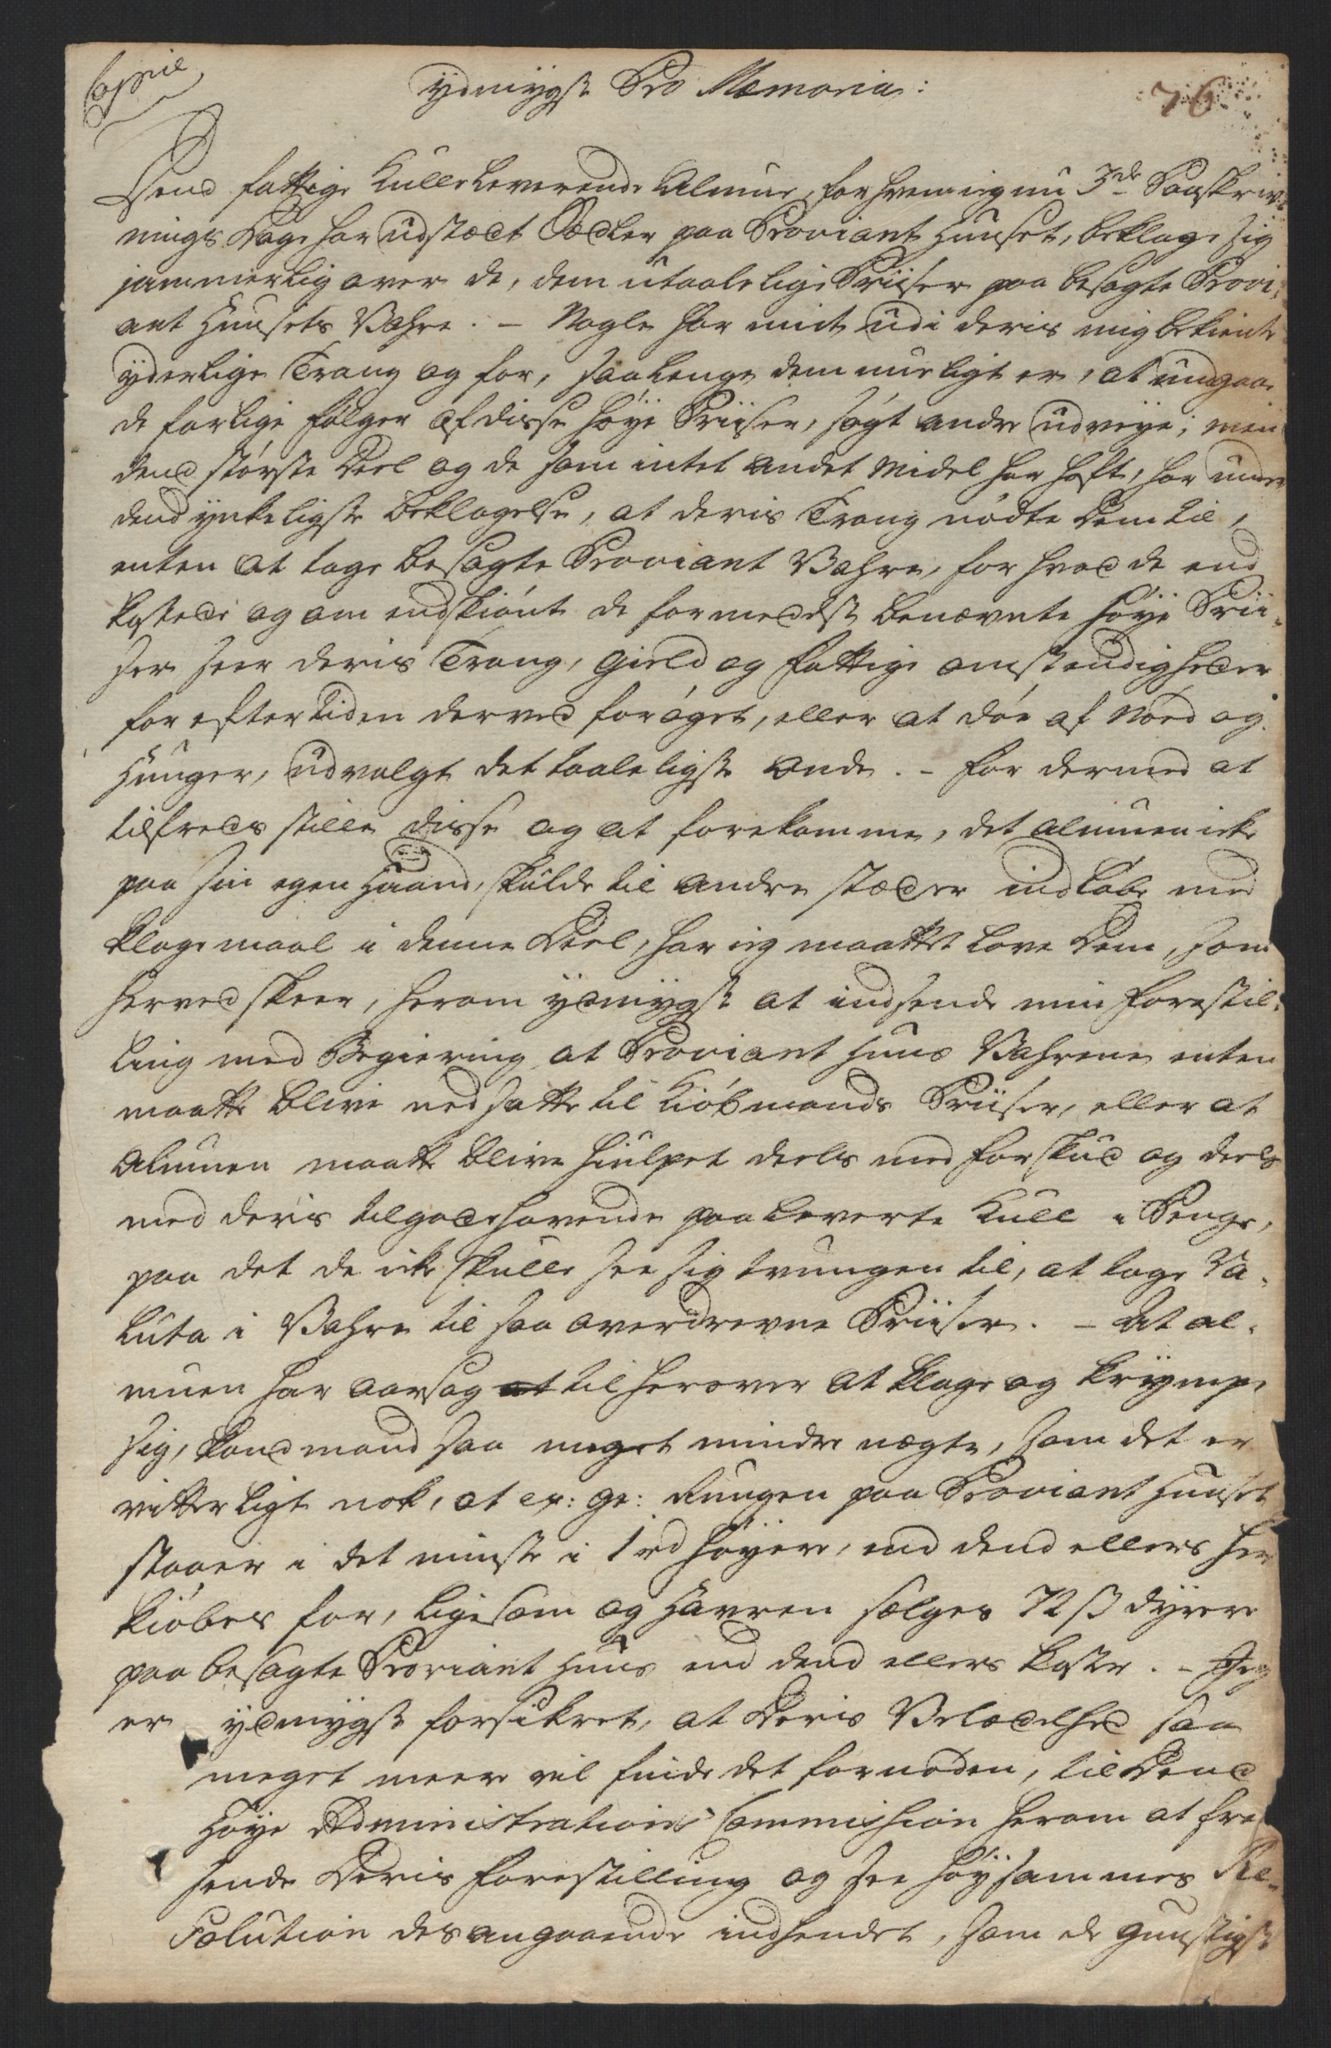 Copie
ydmygst Pro Memoria:
76
Dend fattige Kulleleverende Almue, for hvem jeg nu 3de Paaskriv-
nings Dage har udstædt Sædler paa Proviant Huuset, beklage sig
jammerlig over de, dem utaalelige Priiser paa besagte Provi-
ant Huusets Vahre. - Nogle har midt udi deris mig bekiente
yderlige Trang og for, saalenge dem mueligt er, at undgaae
de farlige følger af disse høye Priiser, søgt andre udveye; men
dend største Deel og de som intet andet Middel har haft, har under
dend ynkeligste beklagelse, at deris Trang nødte Dem til,
enten at tage besagte Proviant Vahre, for hvad de end
kostede og om endskiønt de formedelst benævnte høye Prii-
ser seer deris Trang, gield og fattige omstendigheder
for eftertiden derved forøget, eller at døe af Nød og
Hunger, udvalgt det taaleligste onde. - for dermed at
tilfreds stille disse og at forekomme, det Almuen icke
paa sin egen Haand, skulde til andre stæder indløbe med
klagemaal i denne Deel, har jeg maattet love Dem, som
herved skeer, herom ydmygst at indsende min forestil-
ling med Begiering at Proviant Huus Vahrene enten
maatte blive nedsatte til Kiøbmands Priiser, eller at
Almuen maatte blive hiulpet deels med forskud og deels
med deris tilgodehavende paa leverte Kull i Penge,
paa det de icke skulle see sig tvungen til, at tage Va-
luta i Vahre til saa overdrevne Priiser. - At al-
muen har aarsag at til herover at klage og krympe
sig, kand mand saa meget mindre nægte, som det er
vitterligt nok, at ex: gr: Rugen paa Proviant Huuset
staaer i det minste i 1 rd høyere, end dend ellers her
kiøbes for, ligesom og Havren sælges 72 β dyrere
paa besagte Proviant Huus end dend ellers koster. - Jeg
er ydmygst forsikret, at Deris Velædelhed saa
meget meere vil finde det fornøden, til Dend
Høye Administrations Commishion herom at frem-
sende Deris forestilling og see høysammes Re-
solution desangaaende indhendet, som de gunstigst